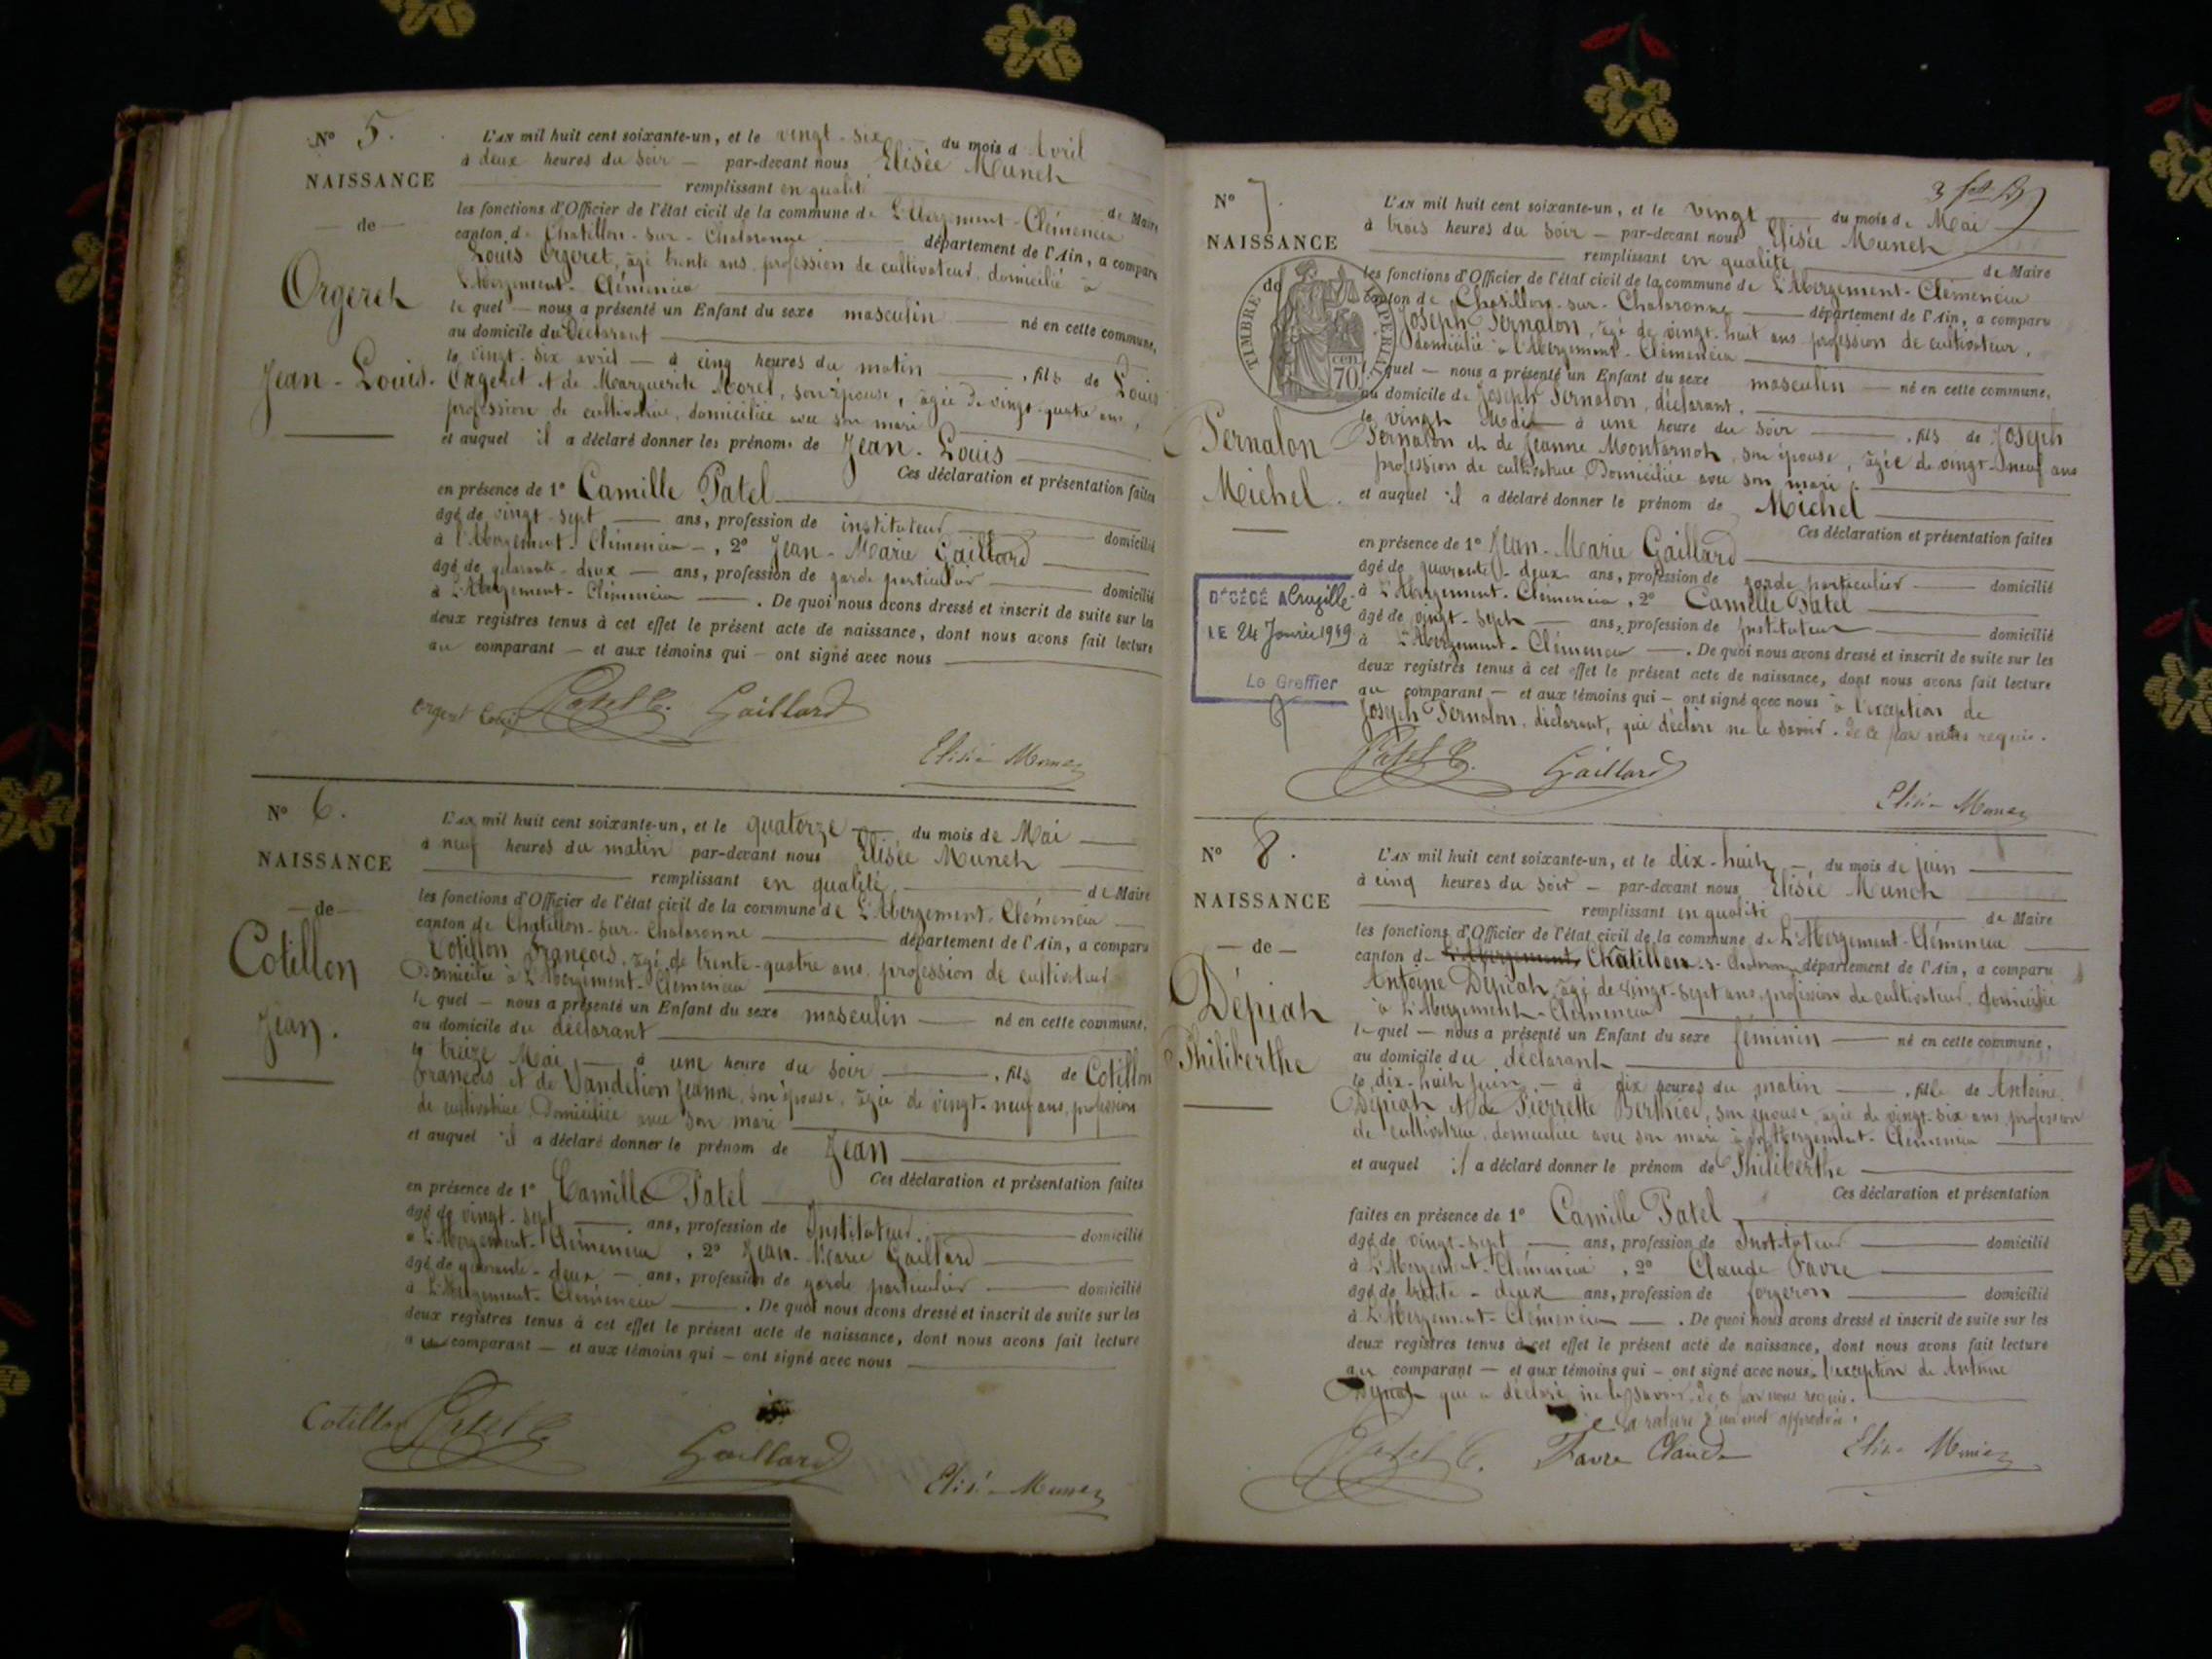 N° 5.
NAISSANCE
de
Orgeret
Jean-Louis.
L'AN mil huit cent soixante-un, et le vingt-six du mois d'Avril
à deux heures du Soir — par-devant nous Elisée Munch
remplissant en qualité de Maire
les fonctions d'Officier de l'état civil de la commune de L'Abergement-Clémencia
canton de Chatillon-sur-Chalaronne département de l'Ain, a comparu
Louis Orgeret, âgé trente ans, profession de cultivateur, domicilié à
L'Abergement-Clémencia
le quel — nous a présenté un Enfant du sexe masculin né en cette commune,
au domicile du Déclarant
le vingt-six avril — à cinq heures du matin, fils de Louis
Orgeret et de Marguerite Morel, son épouse, âgée de vingt-quatre ans,
profession de cultivatrice, domiciliée avec son mari
et auquel il a déclaré donner les prénoms de Jean-Louis
Ces déclaration et présentation faites
en présence de 1° Camille Patel
âgé de vingt-sept ans, profession de instituteur domicilié
à l'Abergement-Clémencia —, 2° Jean-Marie Gaillard
âgé de quarante-deux — ans, profession de garde particulier domicilié
à L'Abergement-Clémencia. De quoi nous avons dressé et inscrit de suite sur les
deux registres tenus à cet effet le présent acte de naissance, dont nous avons fait lecture
au comparant — et aux témoins qui — ont signé avec nous
Orgeret Louis Patel C. Gaillard
N° 6.
NAISSANCE
de
Cotillon
Jean.
L'AN mil huit cent soixante-un, et le quatorze du mois de Mai
à neuf heures du matin par-devant nous Elisée Munch
remplissant en qualité de Maire
les fonctions d'Officier de l'état civil de la commune de L'Abergement-Clémencia
canton de Chatillon-sur-Chalaronne département de l'Ain, a comparu
Cotillon François, âgé de trente-quatre ans, profession de cultivateur
Domicilié à L'Abergement-Clémencia
le quel — nous a présenté un Enfant du sexe masculin né en cette commune,
au domicile du déclarant
le treize Mai, — à une heure du soir, fils de Cotillon
François et de Vandelion Jeanne, son épouse, âgée de vingt-neuf ans, profession
de cultivatrice, Domiciliée avec son mari
et auquel il a déclaré donner le prénom de Jean
Ces déclaration et présentation faites
en présence de 1° Camille Patel
âgé de vingt-sept ans, profession de Instituteur domicilié
à L'Abergement-Clémencia, 2° Jean-Marie Gaillard
âgé de quarante-deux — ans, profession de garde particulier domicilié
à L'Abergement-Clémencia. De quoi nous avons dressé et inscrit de suite sur les
deux registres tenus à cet effet le présent acte de naissance, dont nous avons fait lecture
au comparant — et aux témoins qui — ont signé avec nous
Cotillon Patel C. Gaillard
N° 7.
NAISSANCE
de
TIMBRE IMPERIAL
70 cen
Pernalon
Michel.
L'AN mil huit cent soixante-un, et le vingt du mois de Mai
à trois heures du Soir — par-devant nous Elisée Munch
remplissant en qualité de Maire
les fonctions d'Officier de l'état civil de la commune de L'Abergement-Clémencia
canton de Chatillon-sur-Chalaronne département de l'Ain, a comparu
Joseph Pernalon, âgé de vingt-huit ans profession de cultivateur,
domicilié à l'Abergement-Clémencia
le quel — nous a présenté un Enfant du sexe masculin — né en cette commune,
au domicile de Joseph Pernalon, déclarant.
le vingt Mai — à une heure du Soir, fils de Joseph
Pernalon et de Jeanne Montarnot, son épouse, âgée de vingt-neuf ans
profession de cultivatrice, Domiciliée avec son mari.
et auquel il a déclaré donner le prénom de Michel
Ces déclaration et présentation faites
en présence de 1° Jean-Marie Gaillard
âgé de quarante-deux ans, profession de garde particulier domicilié
à L'Abergement-Clémencia, 2° Camille Patel
âgé de vingt-sept ans, profession de Instituteur domicilié
à L'Abergement-Clémencia. De quoi nous avons dressé et inscrit de suite sur les
deux registres tenus à cet effet le présent acte de naissance, dont nous avons fait lecture
au comparant — et aux témoins qui — ont signé avec nous à l'exception de
Joseph Pernalon, déclarant, qui déclare ne le savoir. de ce par nous requis.
DÉCÉDÉ A Cruzille
LE 24 Janvier 1949
Le Greffier
Patel C. Gaillard
N° 8.
NAISSANCE
de
Dépiat
Philiberthe
L'AN mil huit cent soixante-un, et le dix-huit, du mois de juin
à cinq heures du Soir — par-devant nous Elisée Munch
remplissant en qualité de Maire
les fonctions d'Officier de l'état civil de la commune de L'Abergement-Clémencia
canton de L'Abergement, Chatillon-s-Chalaronne département de l'Ain, a comparu
Antoine Dépiat, âgé de vingt-sept ans, profession de cultivateur, domicilié
à L'Abergement-Clémencia
le quel — nous a présenté un Enfant du sexe féminin né en cette commune,
au domicile du déclarant
le dix-huit Juin, — à dix heures du matin, fille de Antoine
Dépiat et de Pierrette Berthiod, son épouse, âgée de vingt-six ans, profession
de cultivatrice, domiciliée avec son mari à L'Abergement-Clémencia
et auquel il a déclaré donner le prénom de Philiberthe
Ces déclaration et présentation
faites en présence de 1° Camille Patel
âgé de vingt-sept ans, profession de Instituteur domicilié
à L'Abergement-Clémencia, 2° Claude Favre
âgé de trente-deux ans, profession de forgeron domicilié
à L'Abergement-Clémencia. De quoi nous avons dressé et inscrit de suite sur les
deux registres tenus à cet effet le présent acte de naissance, dont nous avons fait lecture
au comparant — et aux témoins qui — ont signé avec nous à l'exception de Antoine
Dépiat qui a déclaré ne le savoir. de ce par nous requis.
La rature d'un mot approuvée.
Patel C. Favre Claude